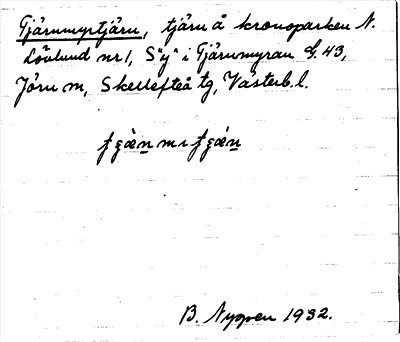 Tjärnmyrtjärn, tjärn å kronoparken N.
Lövlund nr 1, S "y" i Tjärnmyran G. 43,
Jörn sn, Skellefteå tg, Västerb. l.
B. Nygren 1932.